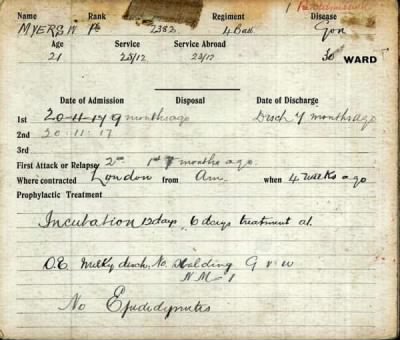 Name Rank Regiment Disease
MYERS W Pte 2382 4 Batt Gon
Age Service Service Abroad
21 2 5/12 2 3/12 30 WARD
Date of Admission Disposal Date of Discharge
1st 20-11-17 9 months ago Disch 7 months ago
2nd 20.11.17
3rd
First Attack or Relapse 2nd 1st 7 months ago.
Where contracted London from Am. when 4 weeks ago
Prophylactic Treatment
Incubation 12 days, 6 days treatment at
O.E. Milky disch. No Scalding G v w
N M -
No Epididymitis